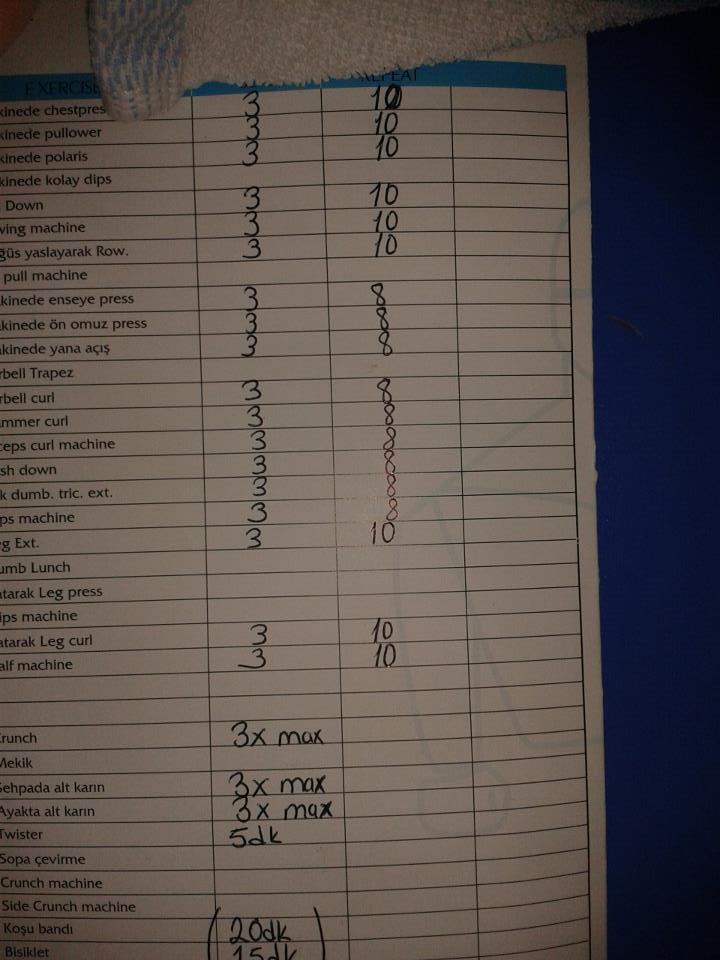 EXERCISE REPEAT
kinede chestpres 3 10
kinede pullower 3 10
kinede polaris 3 10
kinede kolay dips
Down 3 10
ving machine 3 10
ğüs yaslayarak Row. 3 10
pull machine
kinede enseye press 3 8
akinede ön omuz press 3 8
akinede yana açış 3 8
rbell Trapez
rbell curl 3 8
ammer curl 3 8
ceps curl machine 3 8
sh down 3 8
k dumb. tric. ext. 3 8
ps machine 3 8
eg Ext. 3 10
umb Lunch
atarak Leg press
ips machine
atarak Leg curl 3 10
alf machine 3 10
Crunch 3x max
Mekik
Sehpada alt karın 3x max
Ayakta alt karın 3x max
Twister 5dk
Sopa çevirme
Crunch machine
Side Crunch machine
Koşu bandı (20dk)
Bisiklet 15dk